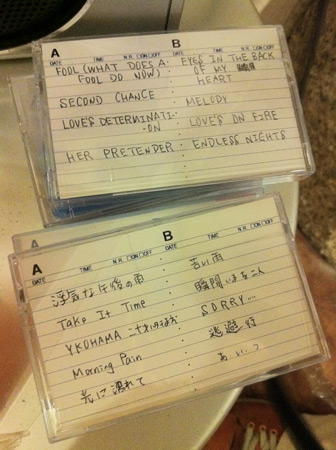 A B
DATE TIME N.R. □ON□OFF DATE TIME N.R. □ON□OFF
FOOL (WHAT DOES A EYES IN THE BACK
FOOL DO NOW) OF MY
HEART
SECOND CHANCE MELODY
LOVE'S DETERMINATI- LOVE'S ON FIRE
-ON
HER PRETENDER ENDLESS NIGHTS
A B
DATE TIME N.R. □ON□OFF DATE TIME N.R. □ON□OFF
浮気な午後の雨 苦い雨
Take It Time 瞬間いま二人
YKOHAMA SORRY...
Morning Pain 逃避行
光に濡れて あい